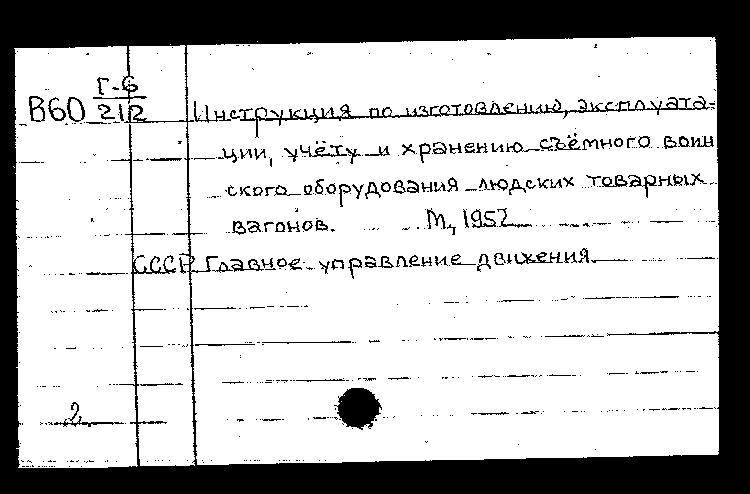 Г-6
В60 212 Инструкция по изготовлению, эксплуата-
ции, учёту и хранению съёмного воин
ского оборудования людских товарных
вагонов. М., 1952
СССР Главное управление движения.
2.